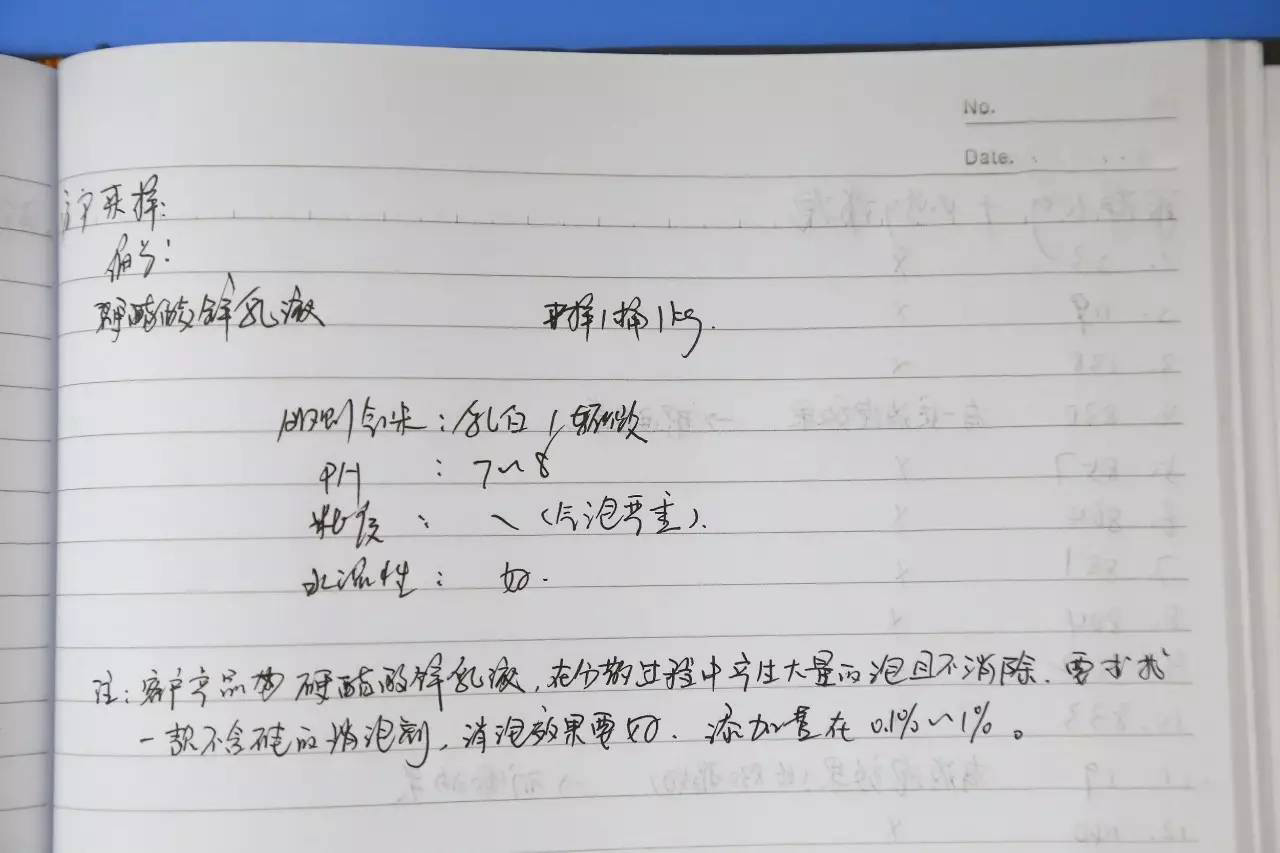 No.
Date.
客户来样:
编号:
硬脂酸锌乳液 来样1桶1kg.
外观气味:乳白
PH : 7~8
粘度: (气泡严重).
水溶性: 好.
注:客户产品为硬脂酸锌乳液,在分散过程中产生大量的泡且不消除.要求找
一款不含硅的消泡剂,消泡效果要好.添加量在0.1%~1%。